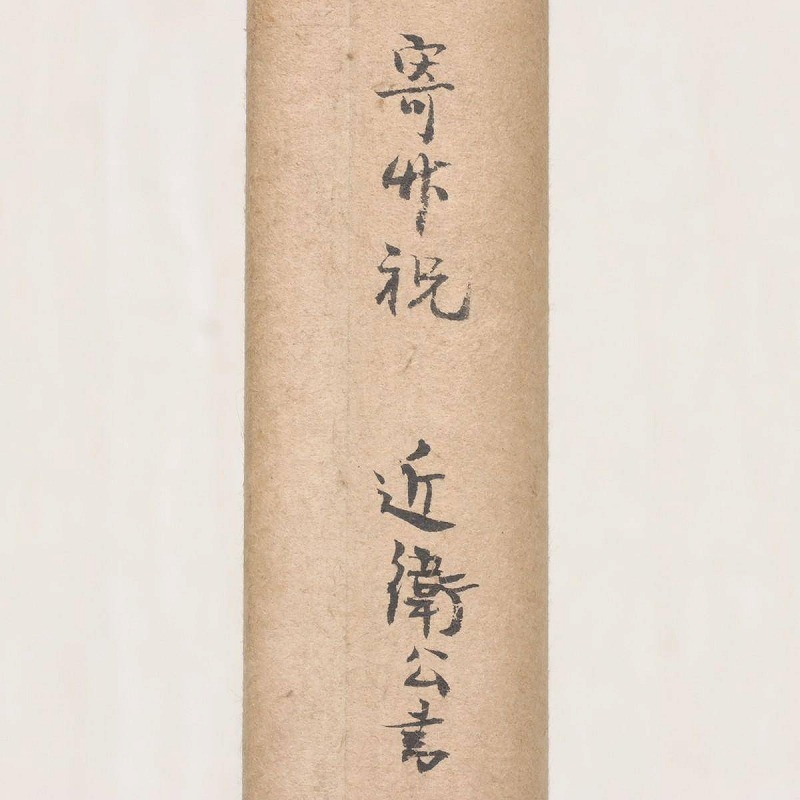 寄竹祝 近衛公書